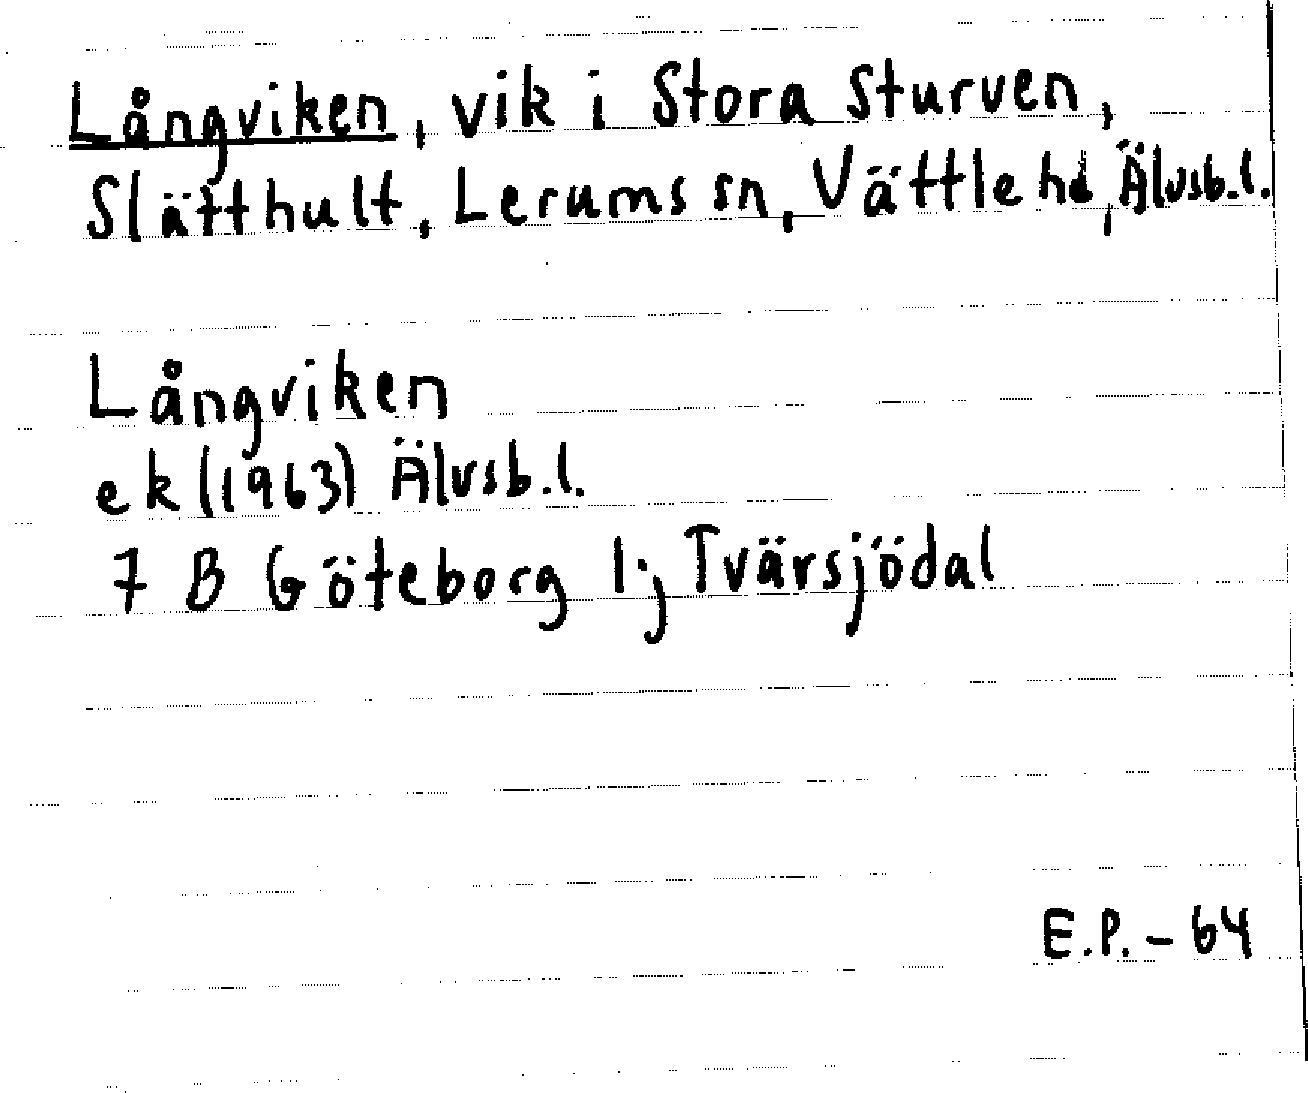 Långviken, vik i Stora Sturven,
Slätthult, Lerums sn, Vättle hd, Älvsb.l.
Långviken
ek (1963) Älvsb.l.
7 B Göteborg 1j, Tvärsjödal
E.P. - 64